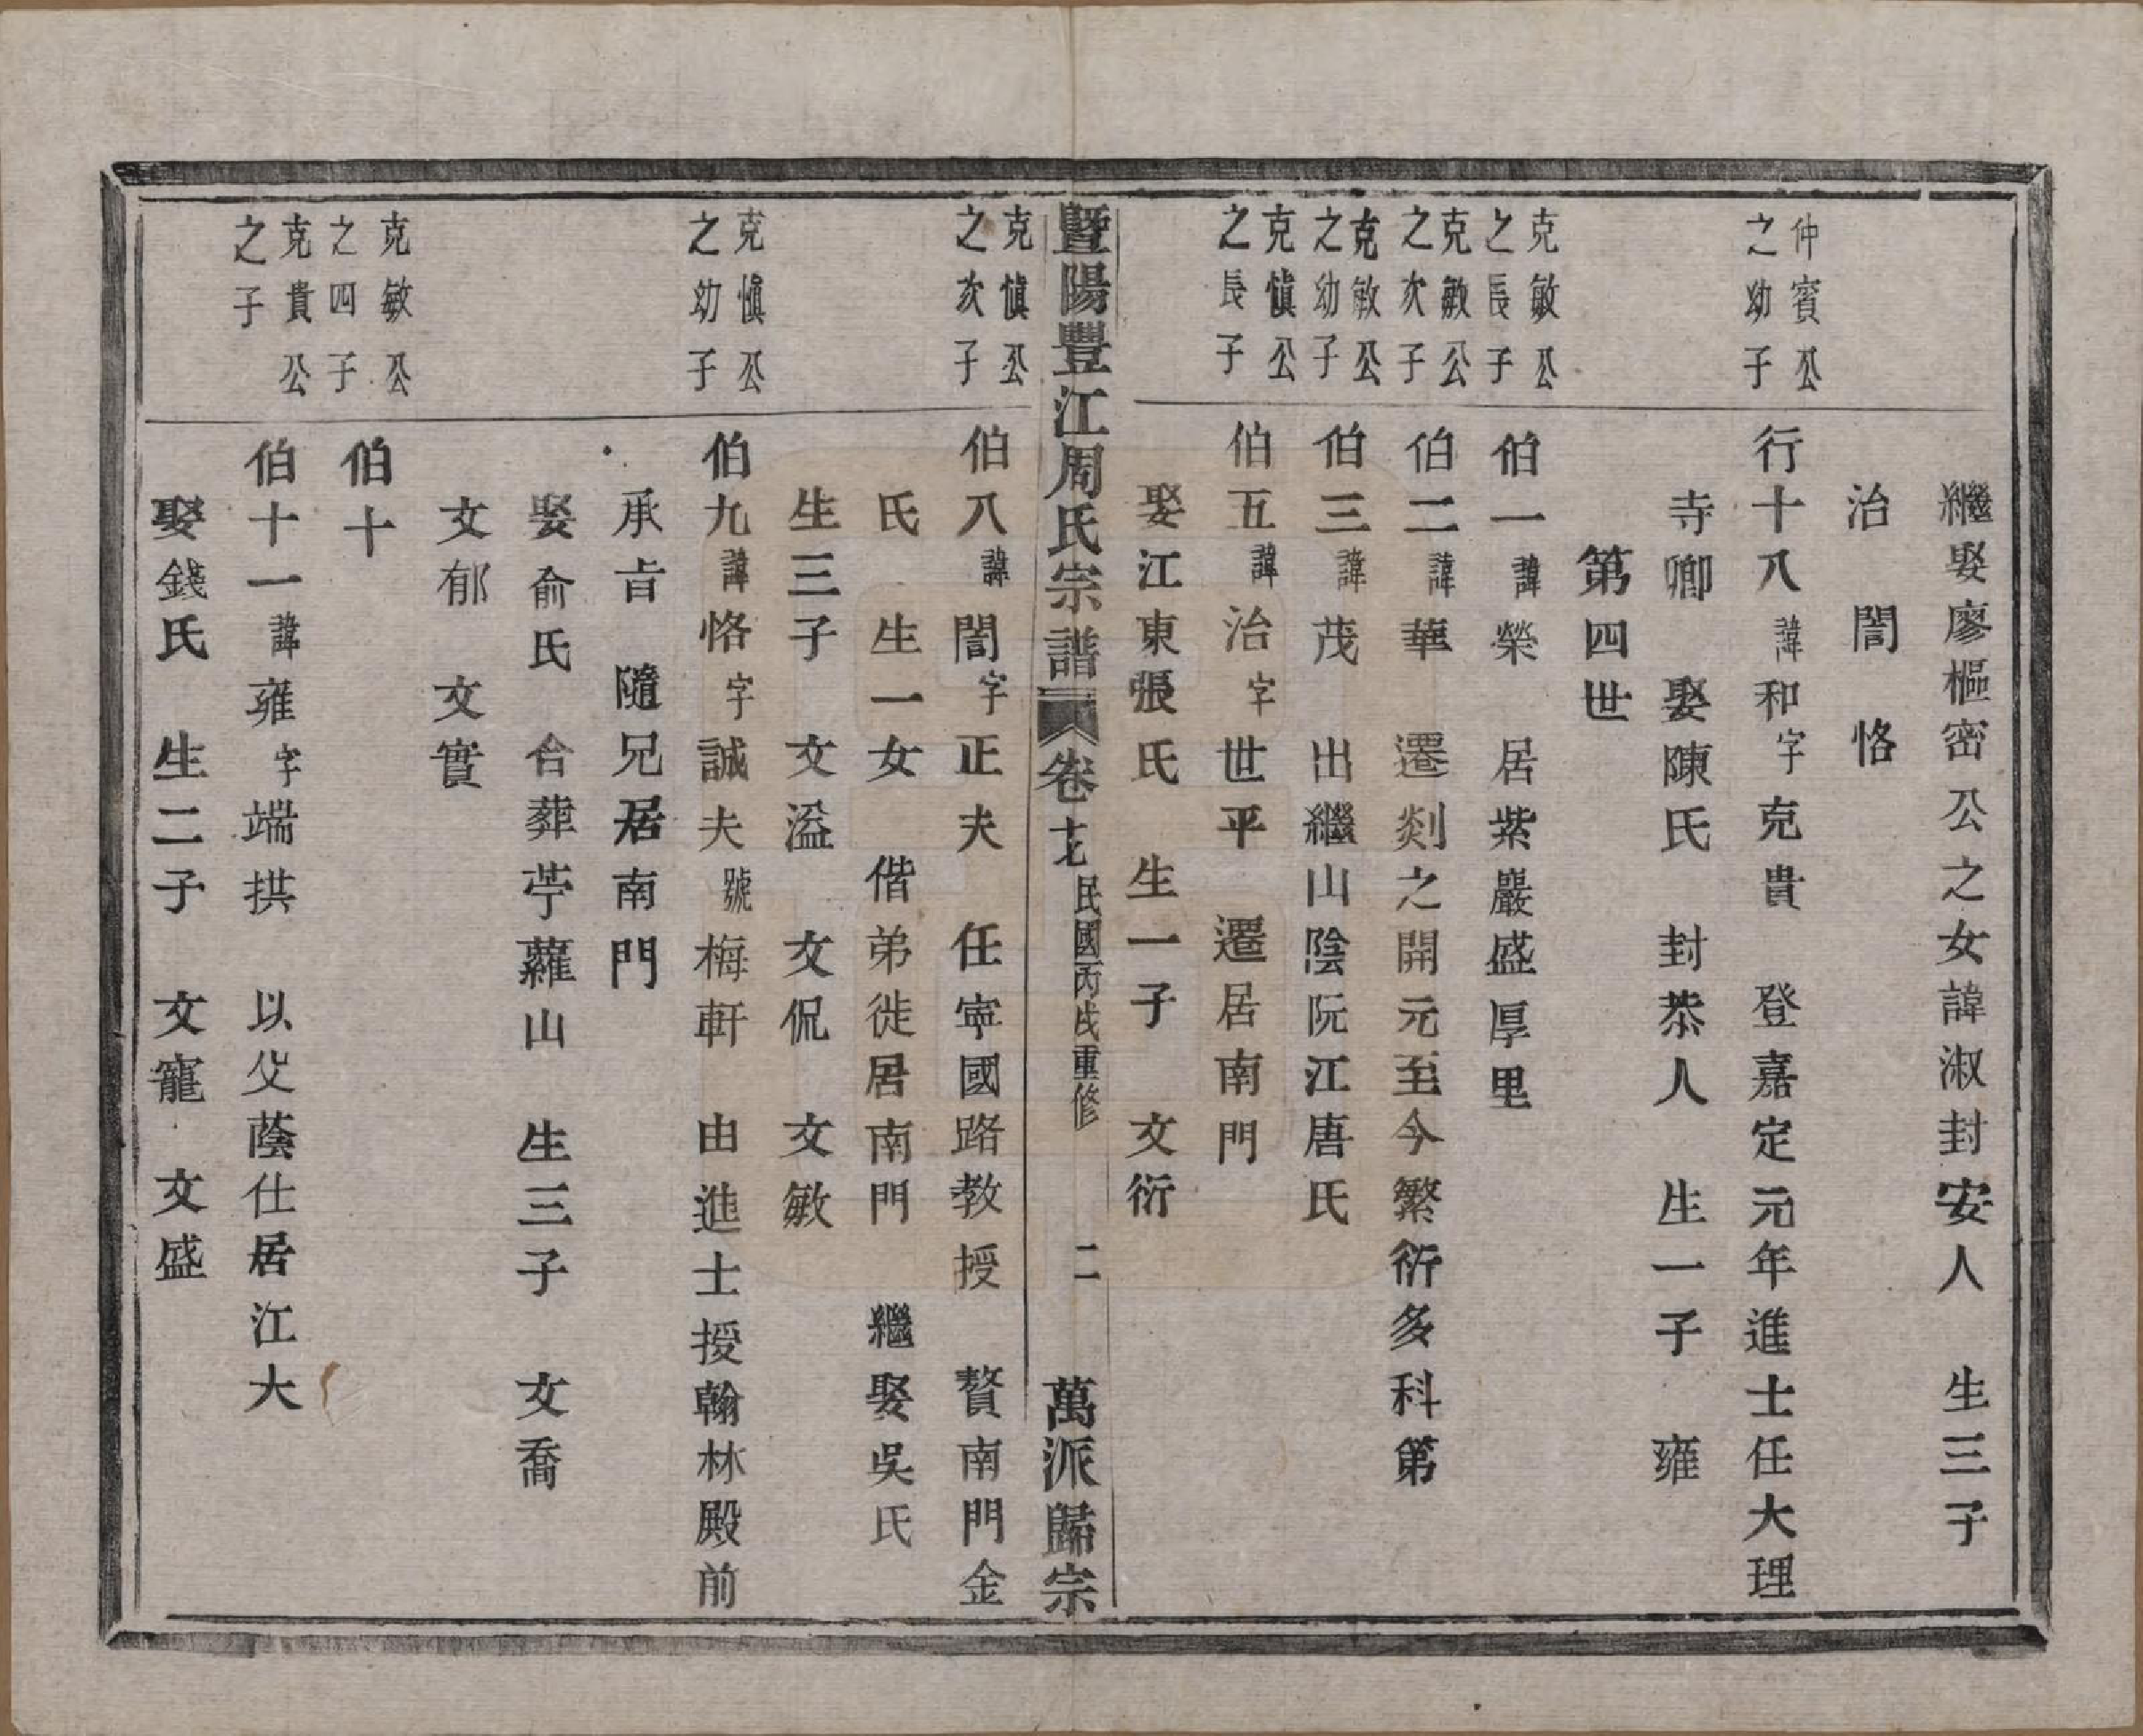 繼娶廖樞密公之女諱淑封安人　生三子
治　誾　恪
仲賓公之幼子
行十八諱和字克貴　登嘉定元年進士任大理
寺卿　娶陳氏　封恭人　生一子　雍
第四世
克敏公之長子
伯一諱榮　居紫巖盛厚里
克敏公之次子
伯二諱華　遷剡之開元至今繁衍多科第
克敏公之幼子
伯三諱茂　出繼山陰阮江唐氏
克愼公之長子
伯五諱治字世平　遷居南門
娶江東張氏　生一子　文衍
暨陽豐江周氏宗譜　卷十九　民國丙戌重修　二　萬派歸宗
克愼公之次子
伯八諱誾字正夫　任寧國路教授　贅南門金
氏　生一女　偕弟徙居南門　繼娶吳氏
生三子　文溢　文侃　文敏
克愼公之幼子
伯九諱恪字誠夫號梅軒　由進士授翰林殿前
承旨　隨兄居南門
娶俞氏　合葬苧蘿山　生三子　文喬
文郁　文實
克敏公之四子
伯十
克貴公之子
伯十一諱雍字端拱　以父蔭仕居江大
娶錢氏　生二子　文寵　文盛